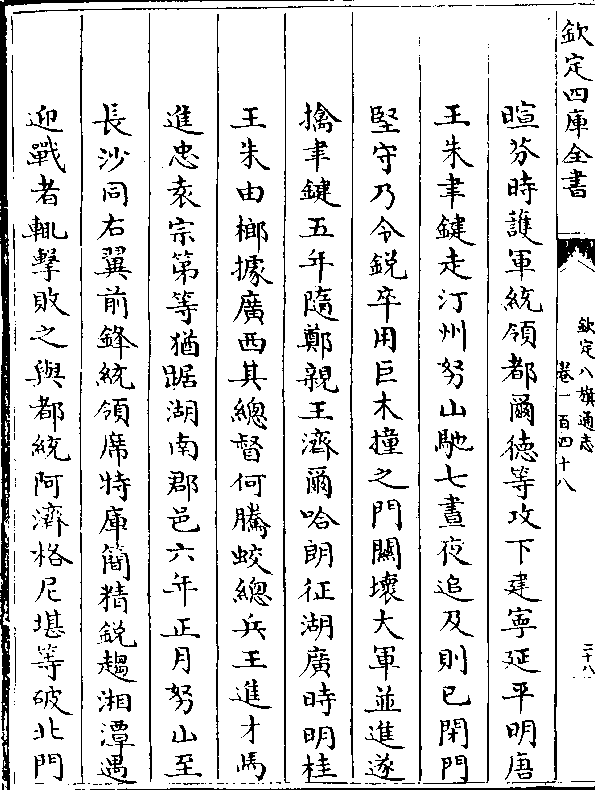 欽定四庫全書
欽定八旗通志
卷一百四十八
二十八
暄芬時護軍統領都爾德等攻下建寧延平明唐
王朱聿鍵走汀州努山馳七晝夜追及則已閉門
堅守乃令銳卒用巨木撞之門關壞大軍並進遂
擒聿鍵五年隨鄭親王濟爾哈朗征湖廣時明桂
王朱由榔據廣西其總督何騰蛟總兵王進才馬
進忠袁宗第等猶踞湖南郡邑六年正月努山至
長沙同右翼前鋒統領席特庫簡精銳趨湘潭遇
迎戰者輒擊敗之與都統阿濟格尼堪等破北門